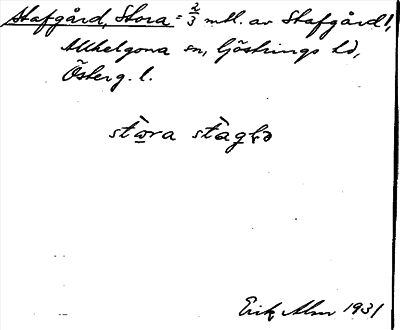 Stafgård, Stora = 2/3 mtl. av Stafgård,
Allhelgona sn, Göstrings hd,
Österg. l.
Erik Alm 1931